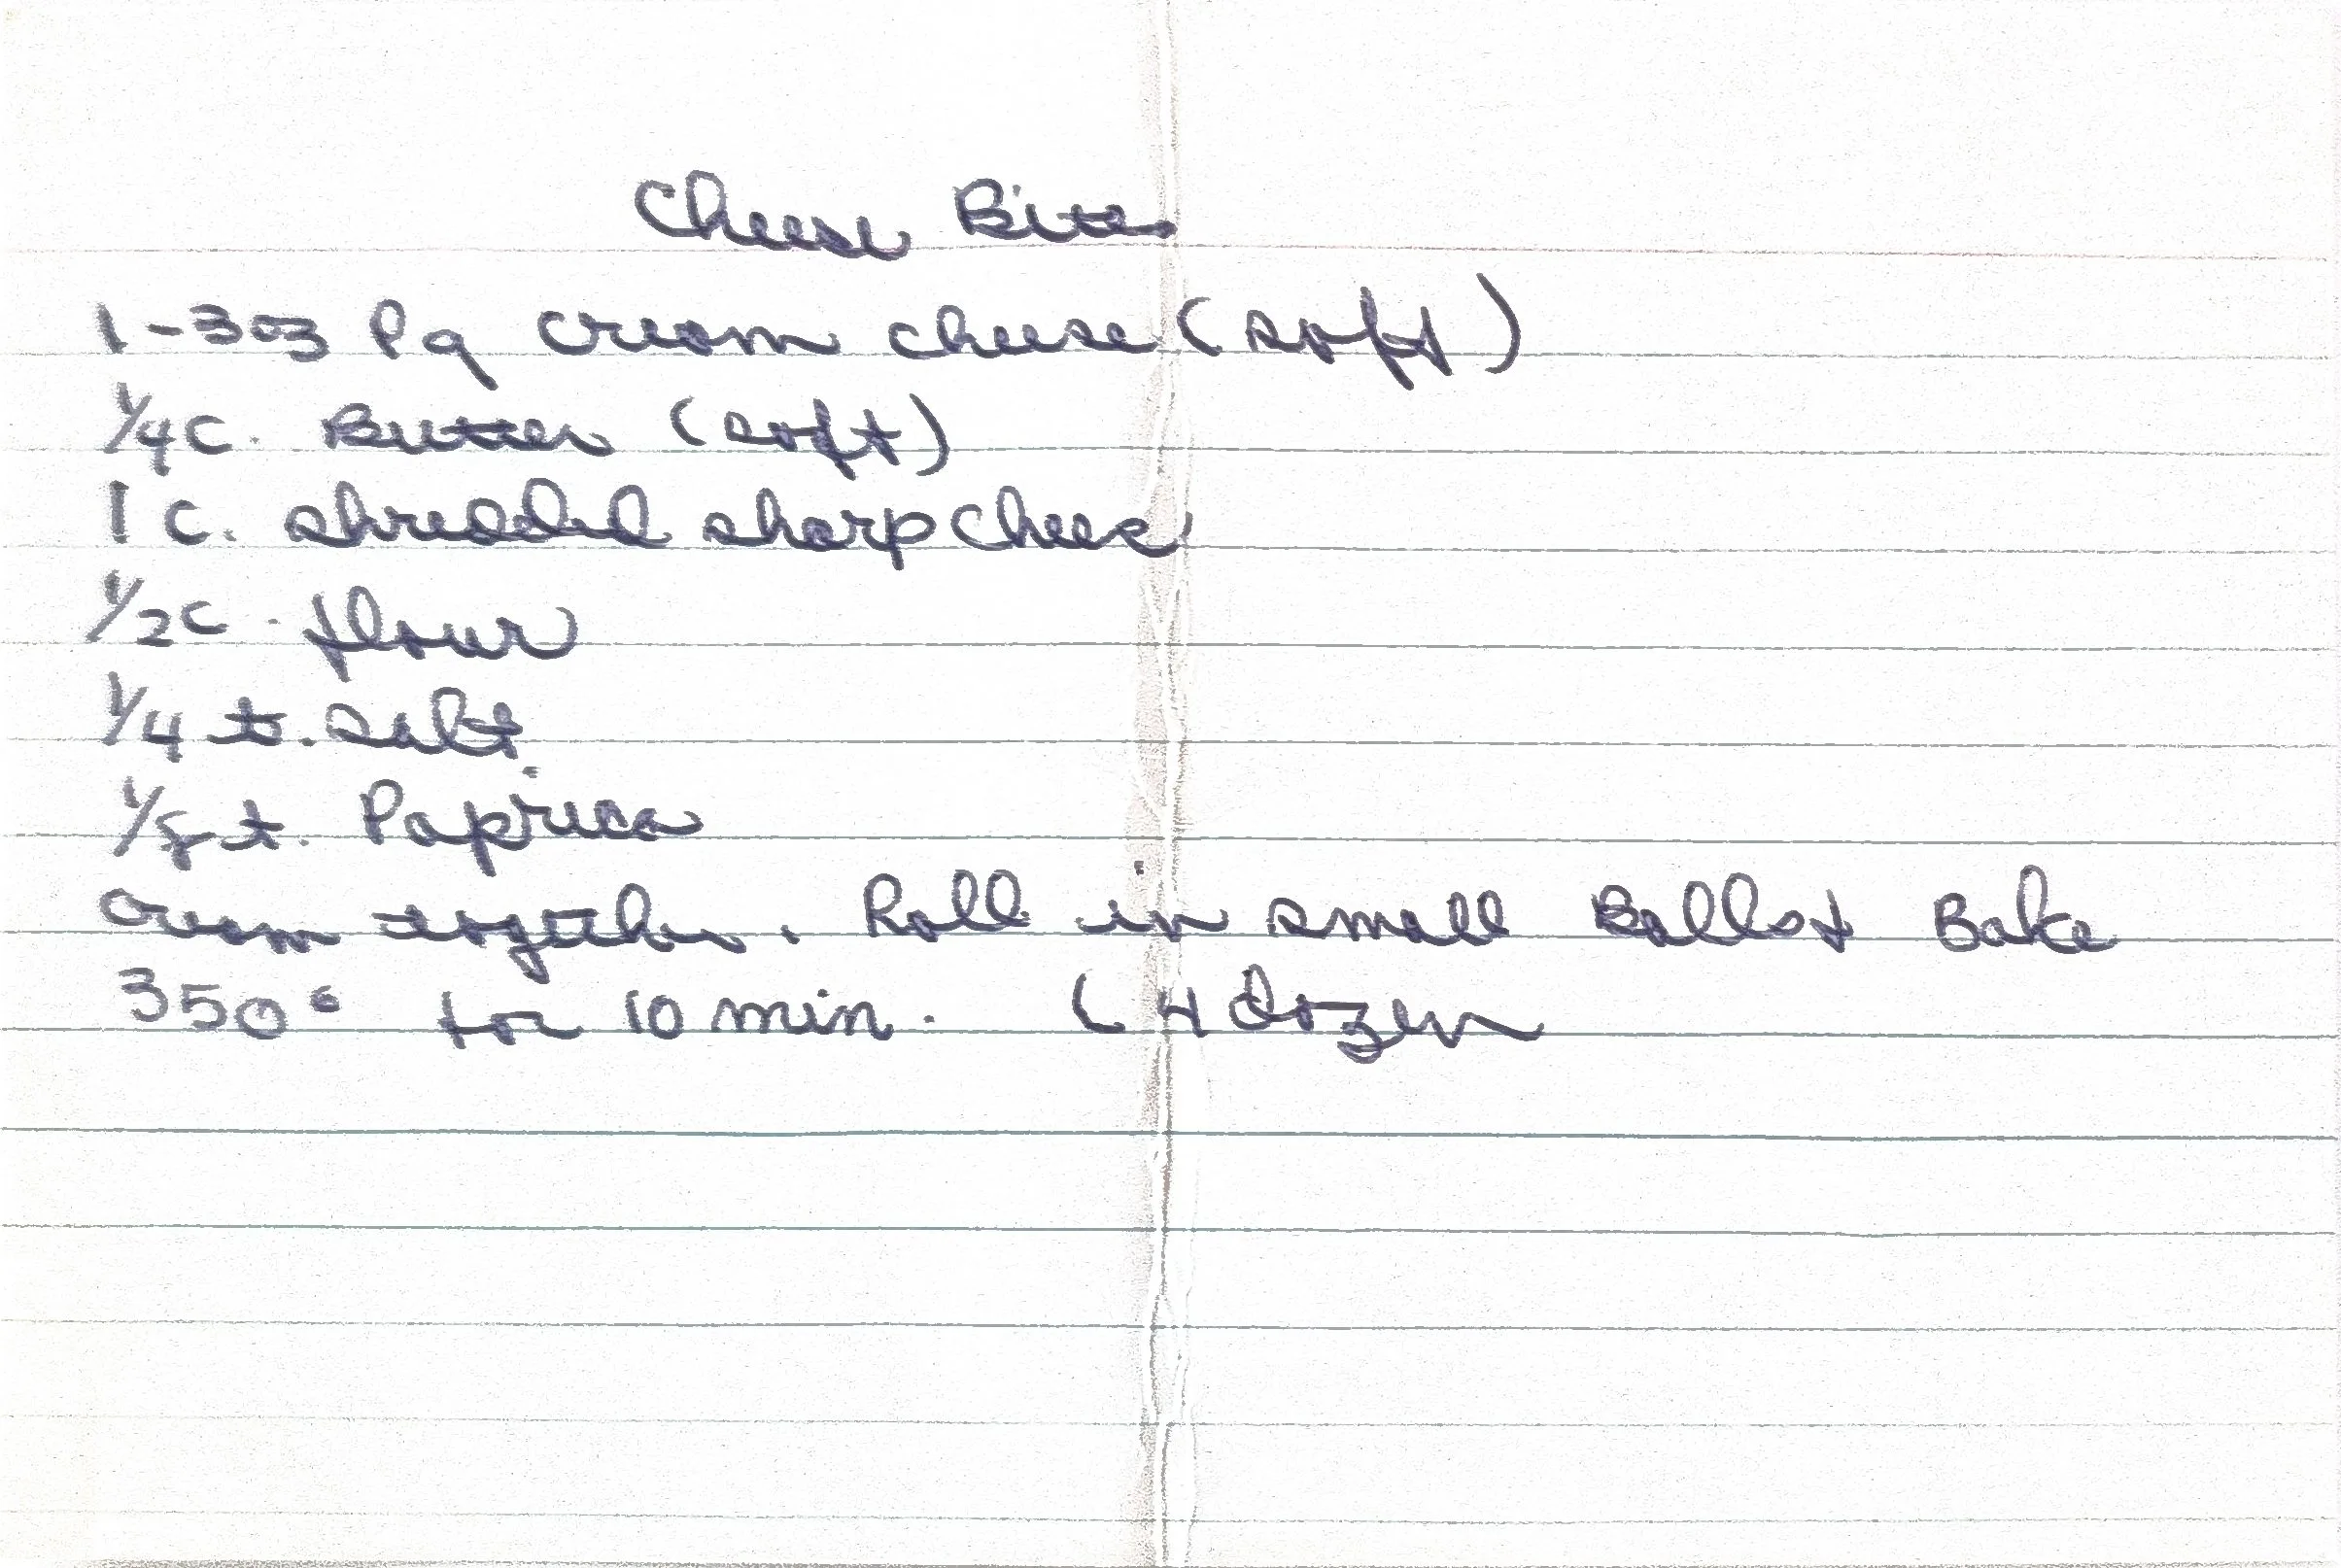 Cheese Bites
1-3oz Pg cream cheese (soft)
1/4 c. Butter (soft)
1 c. shredded sharp cheese
1/2 c. flour
1/4 t. salt
1/8 t. Paprica
Cream together. Roll in small Balls + Bake
350° for 10 min. (4 dozen